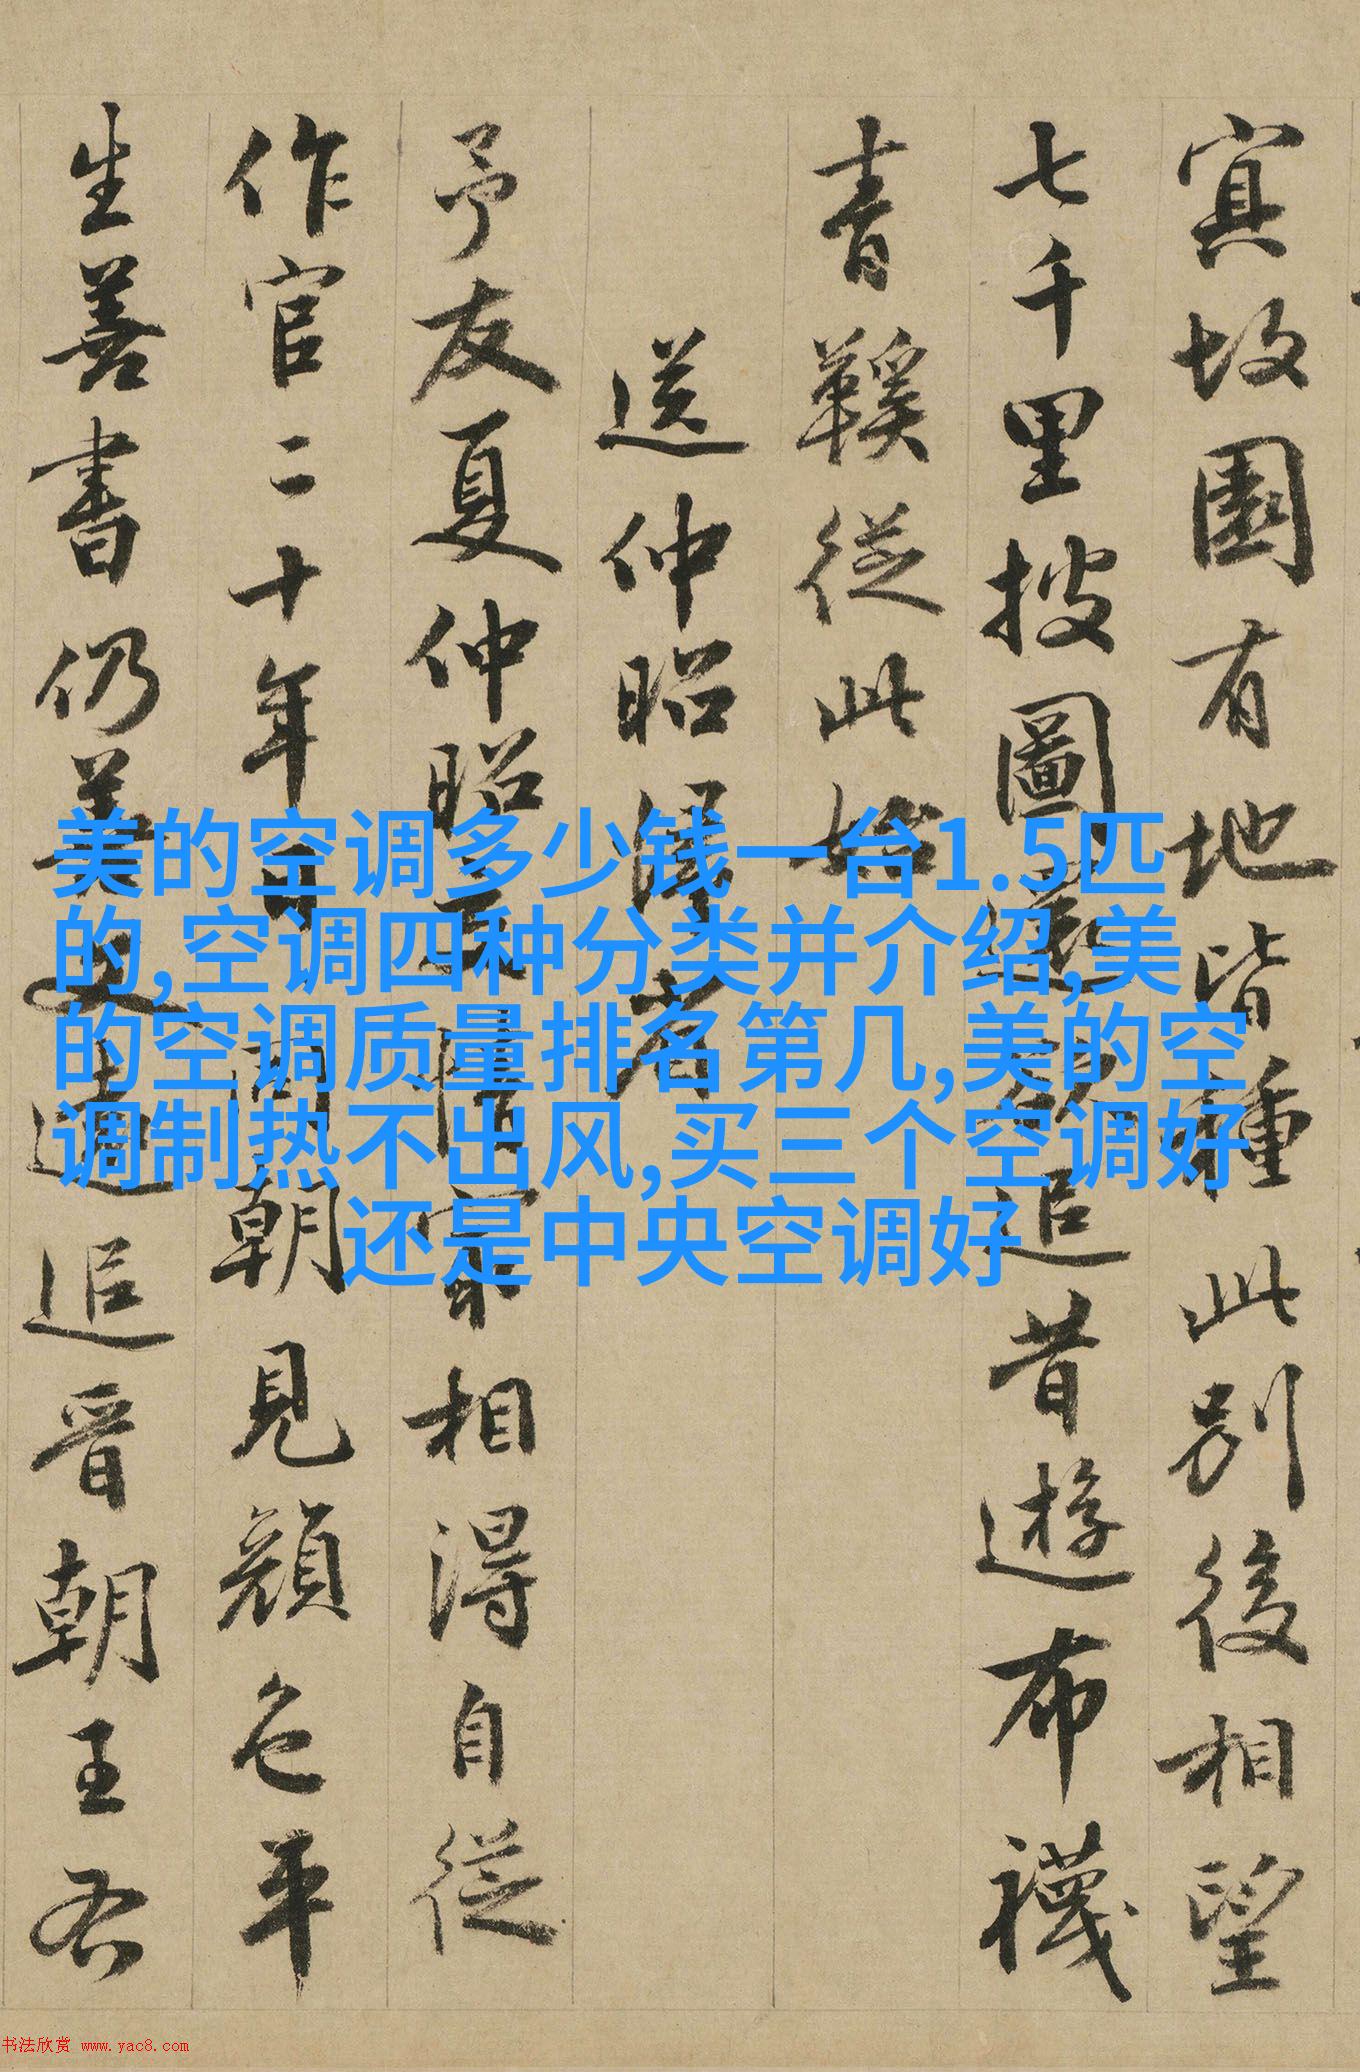 寘故園有地皆種此別後相望
七千里披圖還欲追昔遊布襪
青鞵從此始
送仲昭歸省
予友夏仲昭
家相得自從
作官二十年
朝見顏色平
生善書仍善
追晉朝王右
美的空调多少钱一台1.5匹
的,空调四种分类并介绍,美
的空调质量排名第几,美的空
调制热不出风,买三个空调好
还是中央空调好
书法欣赏 www.yac8.com